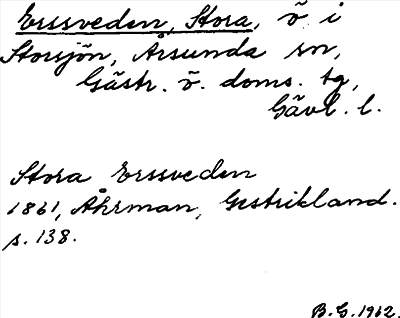 Erssveden, Stora, ö i
Storsjön, Årsunda sn,
Gästr. ö. doms. tg,
Gävl. l.
Stora Erssveden
1861, Åhrman, Gestrikland.
s. 138.
B.G. 1962.